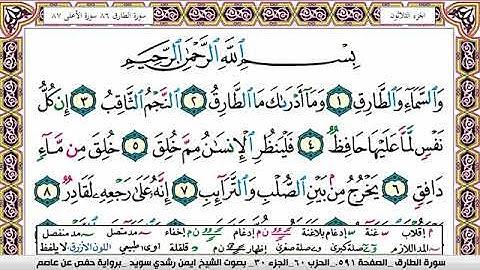 الجزء الثلاثون
سورة الطارق ٨٦ سورة الأعلى ٨٧
بِسْمِ ٱللَّهِ ٱلرَّحْمَٰنِ ٱلرَّحِيمِ
وَٱلسَّمَآءِ وَٱلطَّارِقِ ١ وَمَآ أَدْرَىٰكَ مَا ٱلطَّارِقُ ٢ ٱلنَّجْمُ ٱلثَّاقِبُ ٣ إِن كُلُّ
نَفْسٍ لَّمَّا عَلَيْهَا حَافِظٌ ٤ فَلْيَنظُرِ ٱلْإِنسَٰنُ مِمَّ خُلِقَ ٥ خُلِقَ مِن مَّآءٍ
دَافِقٍ ٦ يَخْرُجُ مِنۢ بَيْنِ ٱلصُّلْبِ وَٱلتَّرَآئِبِ ٧ إِنَّهُۥ عَلَىٰ رَجْعِهِۦ لَقَادِرٌ ٨
م إقلاب غنة إدغام بلاغنة ن م إدغام ن م إخفاء مد متصل مد منفصل
المد اللازم صلة كبرى صلة صغرى ن م إظهار قلقلة اوى طبيعي اللون الأزرق لا يلفظ
سورة الطارق _ الصفحة ٥٩١ _ الحزب ٦٠ _ الجزء ٣٠ _ بصوت الشيخ ايمن رشدي سويد _ برواية حفص عن عاصم